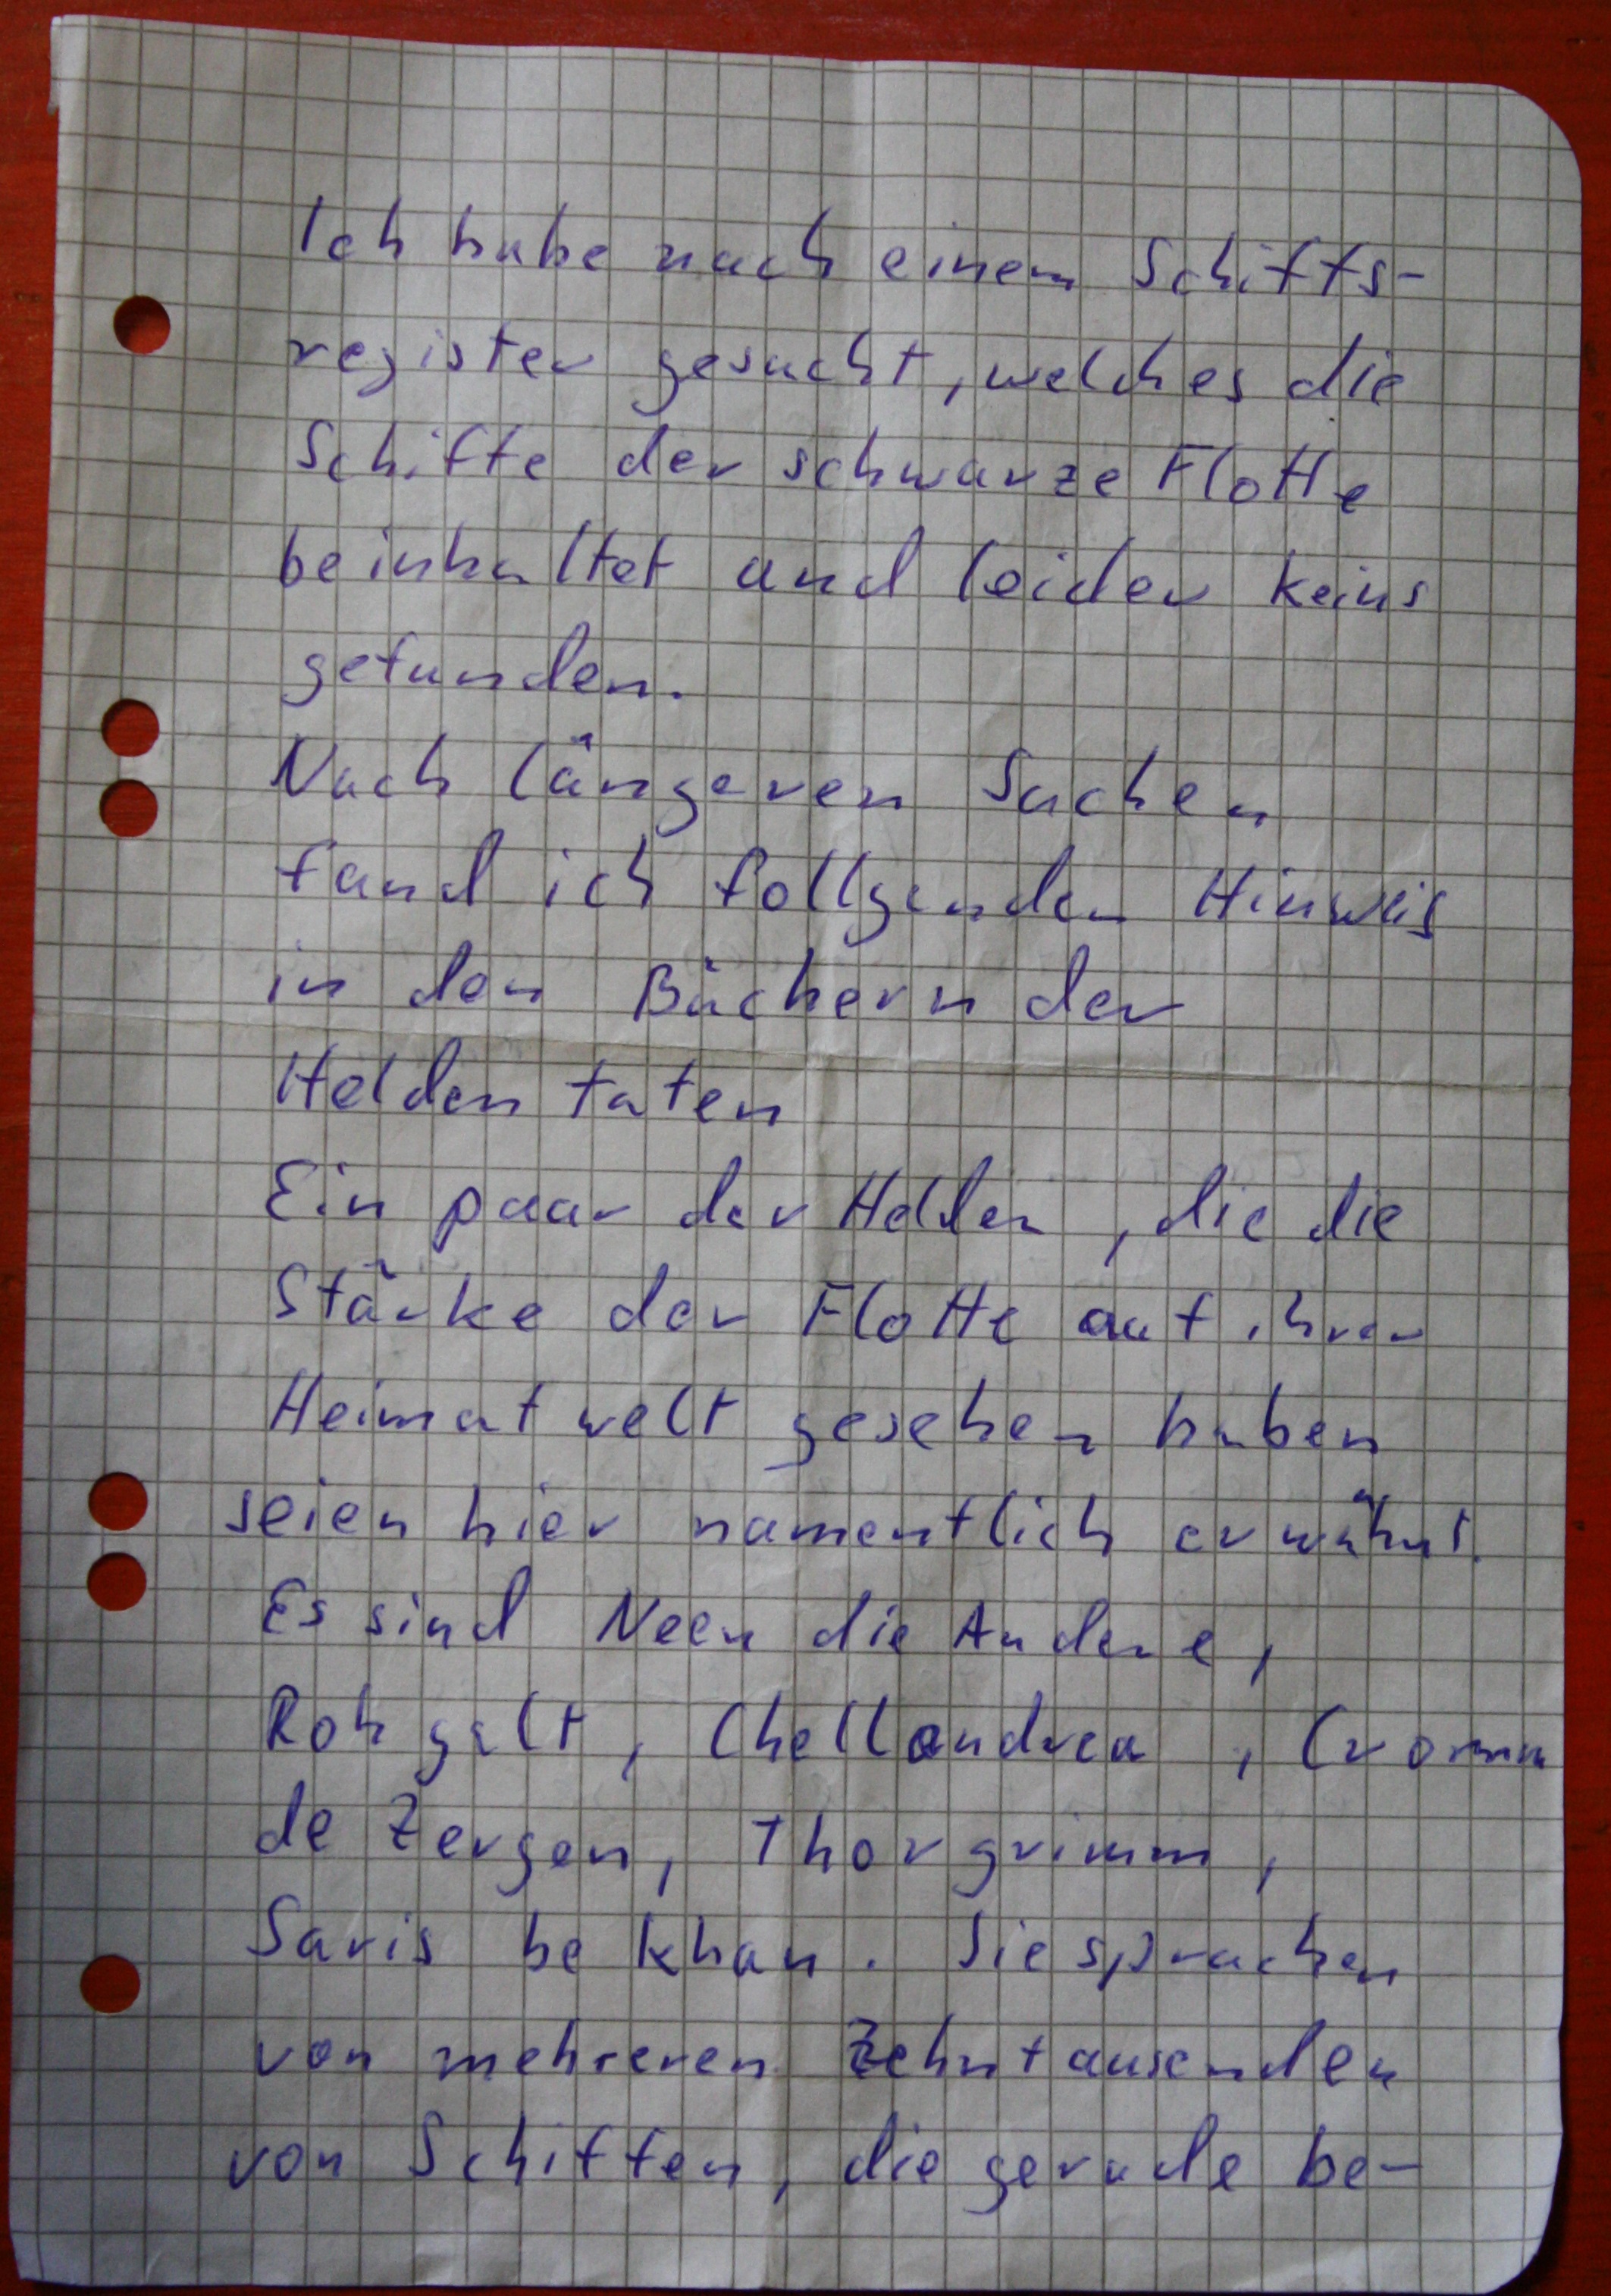 Ich habe nach einem Schiffs-
register gesucht, welches die
Schiffe der schwarze Flotte
beinhaltet und leider keins
gefunden.
Nach längeren Suchen
fand ich follgenden Hinweis
in den Büchern der
Helden taten
Ein paar der Helden, die die
Stärke der Flotte auf ihrer
Heimatwelt gesehen haben
seien hier namentlich erwähnt.
Es sind Neen die Andere,
Roh galt, Chellandrea, Cromm
de Zergen, Thorgrimm,
Saris be khan. Sie sprachen
von mehreren Zehntausenden
von Schiffen, die gerade be-